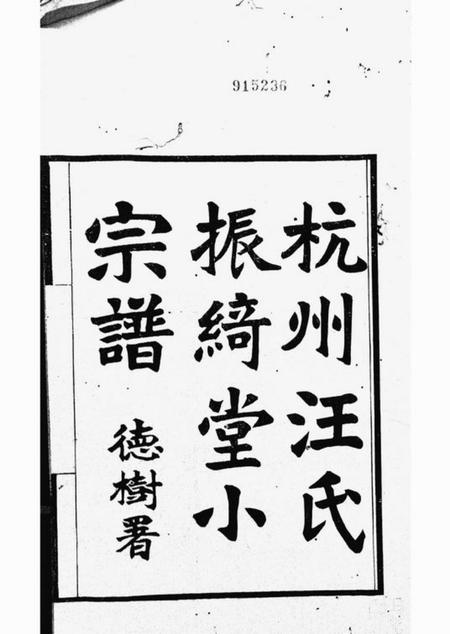 915236
杭州汪氏
振綺堂小
宗譜
德樹署